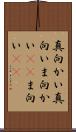 真向かい真
向いま向か
い((ま向
い((